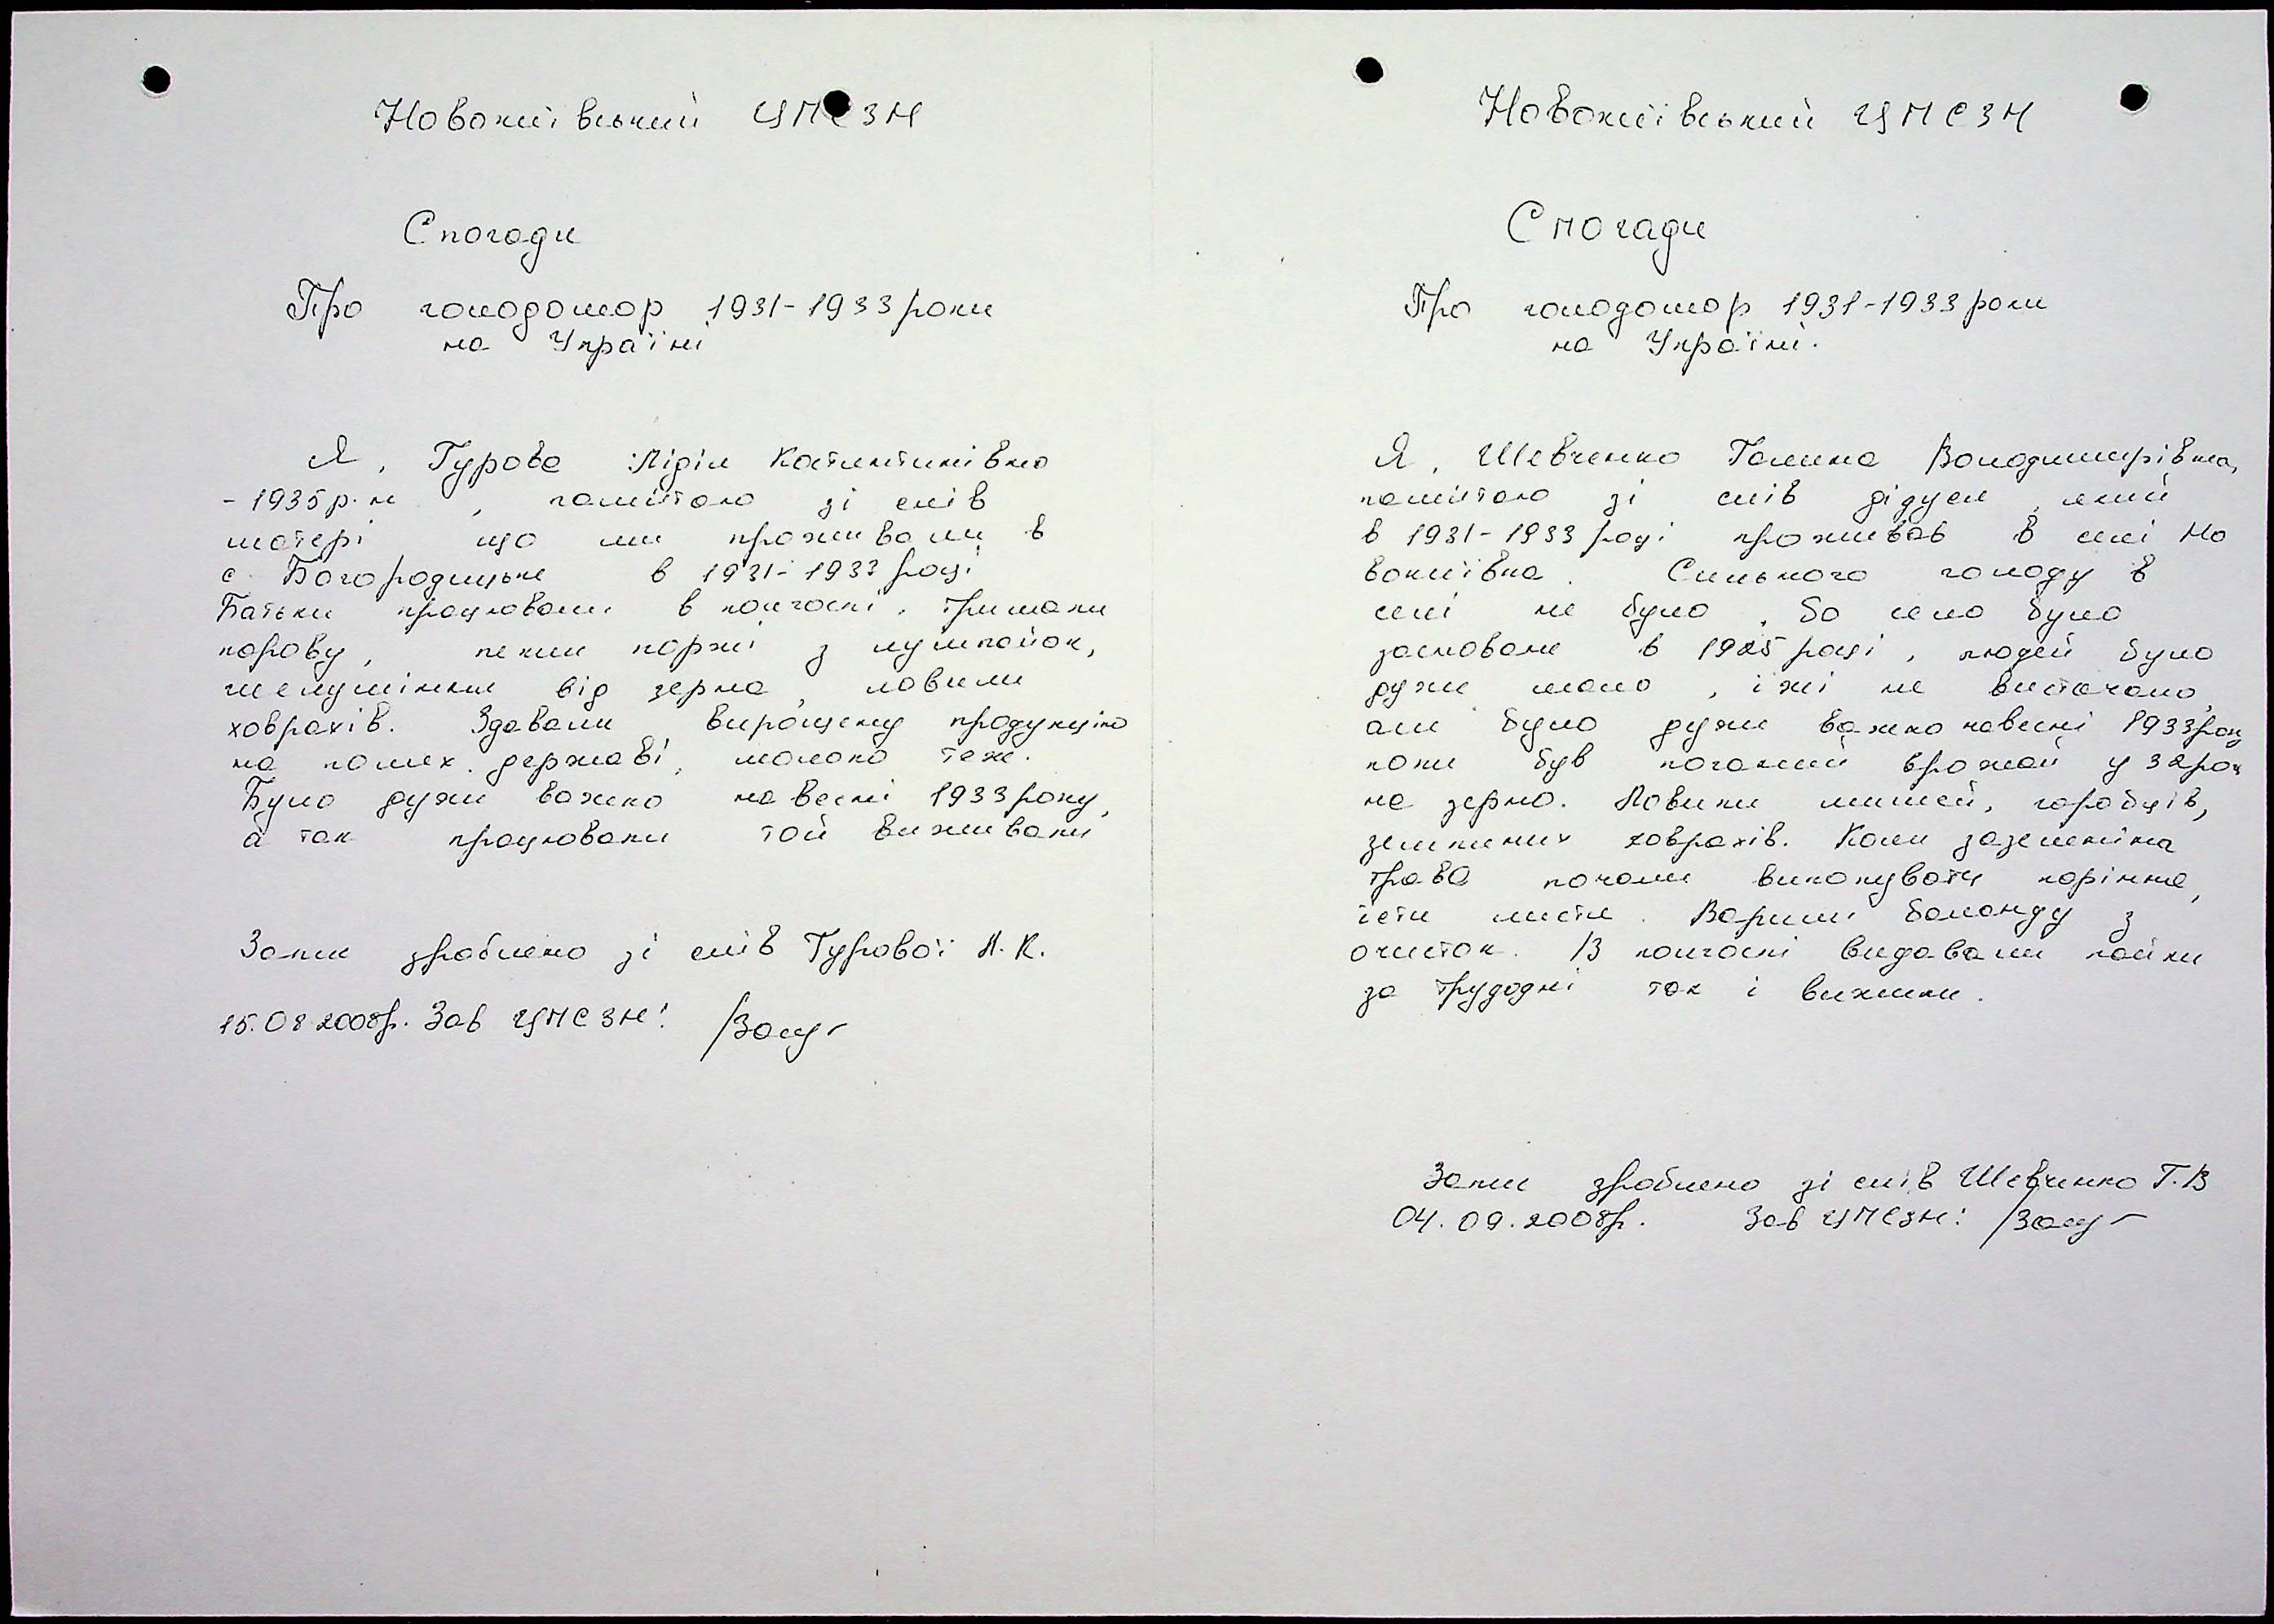 Новокиївський ЦМСЗН
Спогади
Про голодомор 1931-1933 роки
на Україні
Я, Гурова Лідія Костянтинівна
- 1935 р. н , пам'ятаю зі слів
матері що ми проживали в
с. Богородицьке в 1931-1933 році
Батьки працювали в колгоспі, тримали
корову, пекли коржі з
від зерна, ловили
ховрахів. Здавали вирощену продукцію
на полях державі, молоко теж.
Було дуже важко навесні 1933 року,
а так працювали той виживали
Запис зроблено зі слів Гурової Л. К.
15.08 2008р. Зав ЦМСЗН:
Новокиївський ЦМСЗН
Спогади
Про голодомор 1931-1933 роки
на Україні.
Я, Шевченко Галина Володимирівна,
пам'ятаю зі слів дідуся, який
в 1931-1933 році проживав в селі Но
вокиївка. Сильного голоду в
селі не було, бо село було
засноване в 1925 році, людей було
дуже мало, їжі не вистачало,
але було дуже важко навесні 1933 року
коли був поганий врожай у 32 році
на зерно. Ловили мишей, горобців,
земляних ховрахів. Коли зазеленіла
трава почали викопувати коріння,
їсти листя. Варили баланду з
очисток. В колгоспі видавали пайки
за трудодні так і вижили.
Запис зроблено зі слів Шевченко Г.В
04.09.2008р. Зав ЦМСЗН: